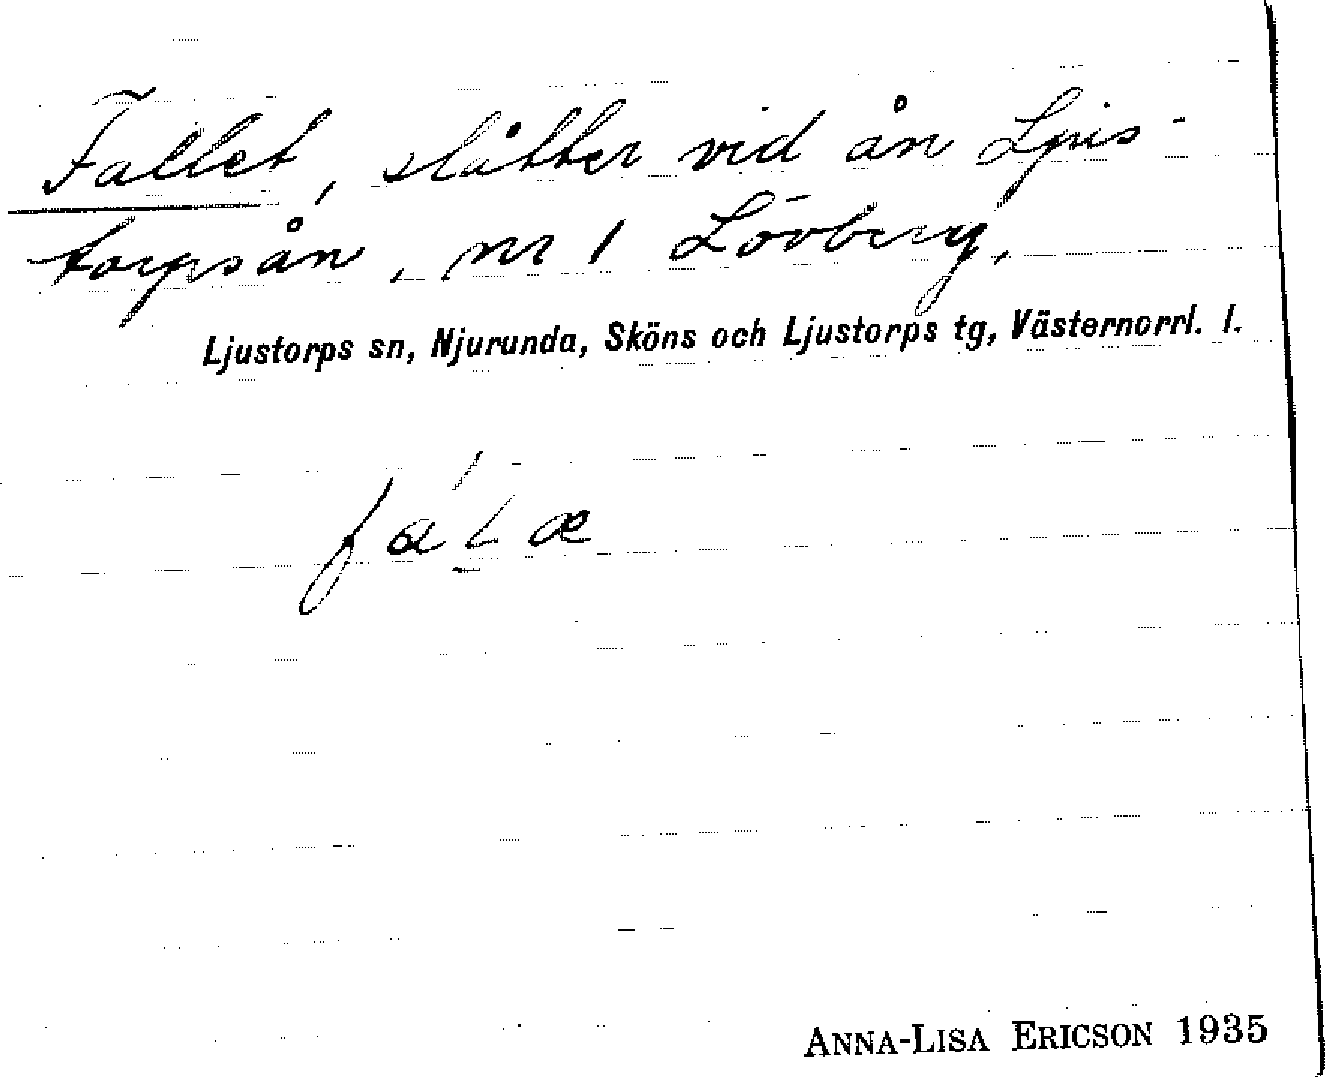 Fallet, slåtter vid ån Ljus-
torpsån, nr 1 Lövberg.
Ljustorps sn, Njurunda, Sköns och Ljustorps tg, Västernorrl. l.
ANNA-LISA ERICSON 1935